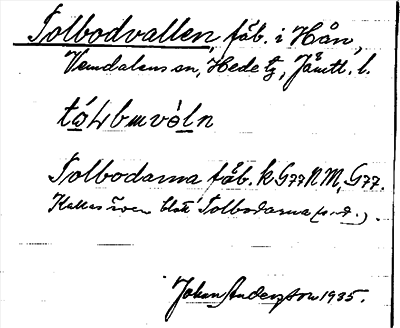 Tolbodvallen, fäb. i Hån,
Vemdalens sn, Hede tg, Jämtl. l.
Tolbodarna fäb. k G77NM, G77.
Kallas även blott Tolbodarna
Johan Anderzson 1935.